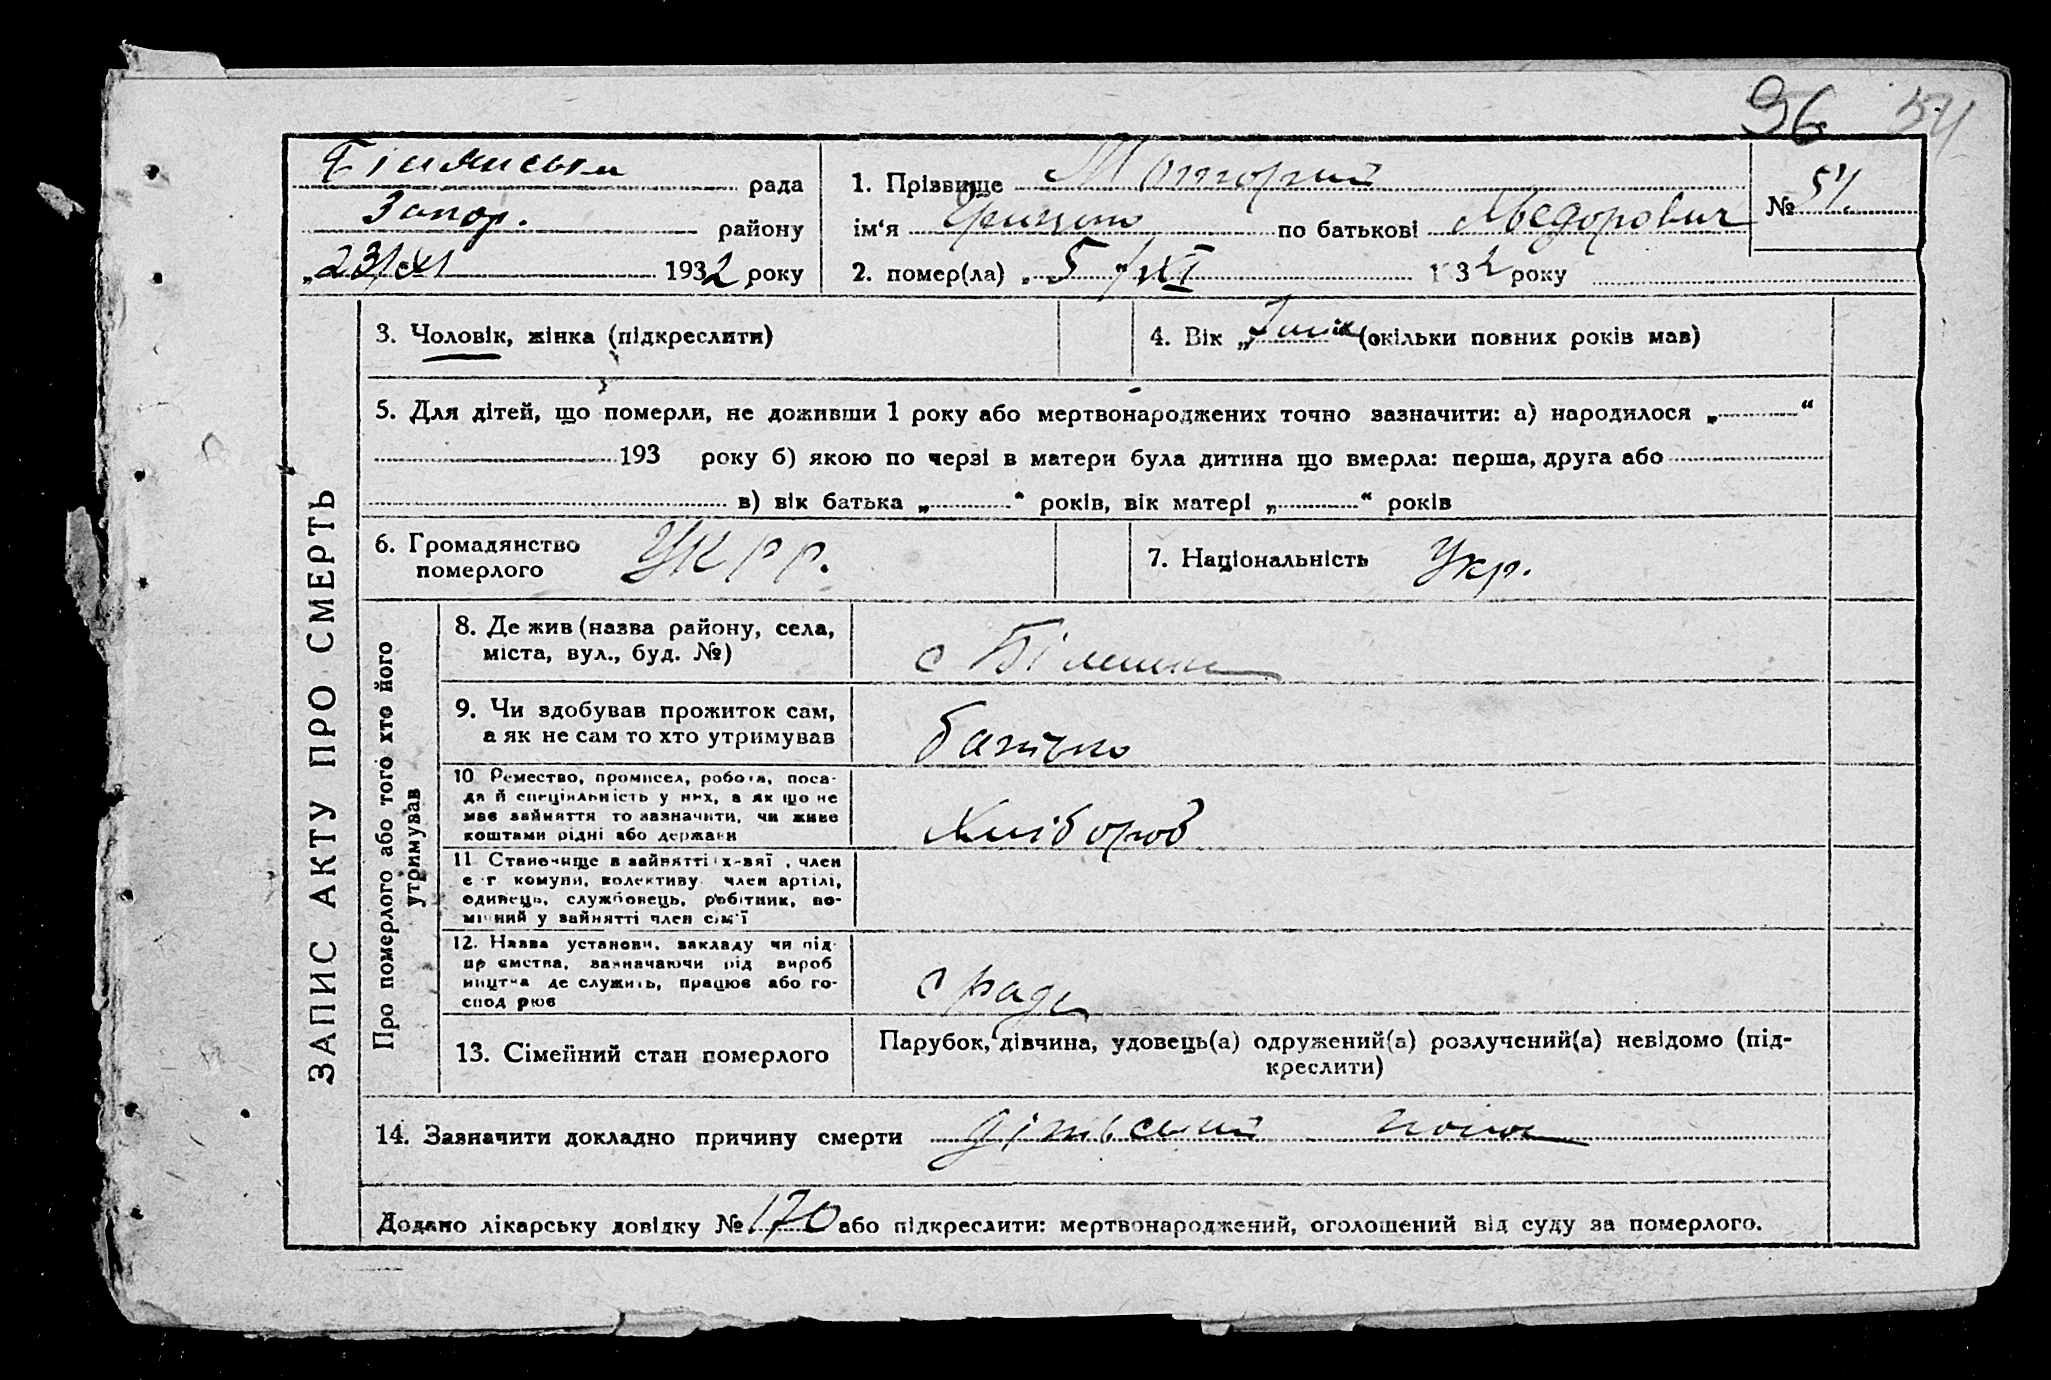 96 54
рада
Запор. району
„23/XI 1932 року
1. Прізвище Моторний
ім‘я Грицько по батькові Федорович
№ 54
2. помер(ла) „ 5 “/XI 1 32 року
ЗАПИС АКТУ ПРО СМЕРТЬ
3. Чоловік, жінка (підкреслити)
4. Вік „ (скільки повних років мав)
5. Для дітей, що померли, не доживши 1 року або мертвонароджених точно зазначити: а) народилося „ “
193 року б) якою по черзі в матери була дитина що вмерла: перша, друга або
в) вік батька „ “ років, вік матері „ “ років
6. Громадянство
померлого УКРР.
7. Національність Укр.
Про померлого або того хто його
утримував
8. Де жив (назва району, села,
міста, вул., буд. №)
с
9. Чи здобував прожиток сам,
а як не сам то хто утримував
батько
10 Ремество, промисел, робота, поса-
да й спеціяльність у них, а як що не
має зайняття то зазначити, чи живе
коштами рідні або держави
Хлібороб
11 Становище в зайнятті х-вяї , член
с г комуни, колективу член артілі,
одинець, службовець, робітник, по-
мічний у зайнятті член сім'ї
12. Назва установи, закладу чи під-
пр ємства, зазначаючи рід вироб
ництва де служить, працює або го-
спод рює
с рада
13. Сімейний стан померлого
Парубок, дівчина, удовець(а) одружений(а) розлучений(а) невідомо (під-
креслити)
14. Зазначити докладно причину смерти дітвський
Додано лікарську довідку № 170 або підкреслити: мертвонароджений, оголошений від суду за померлого.